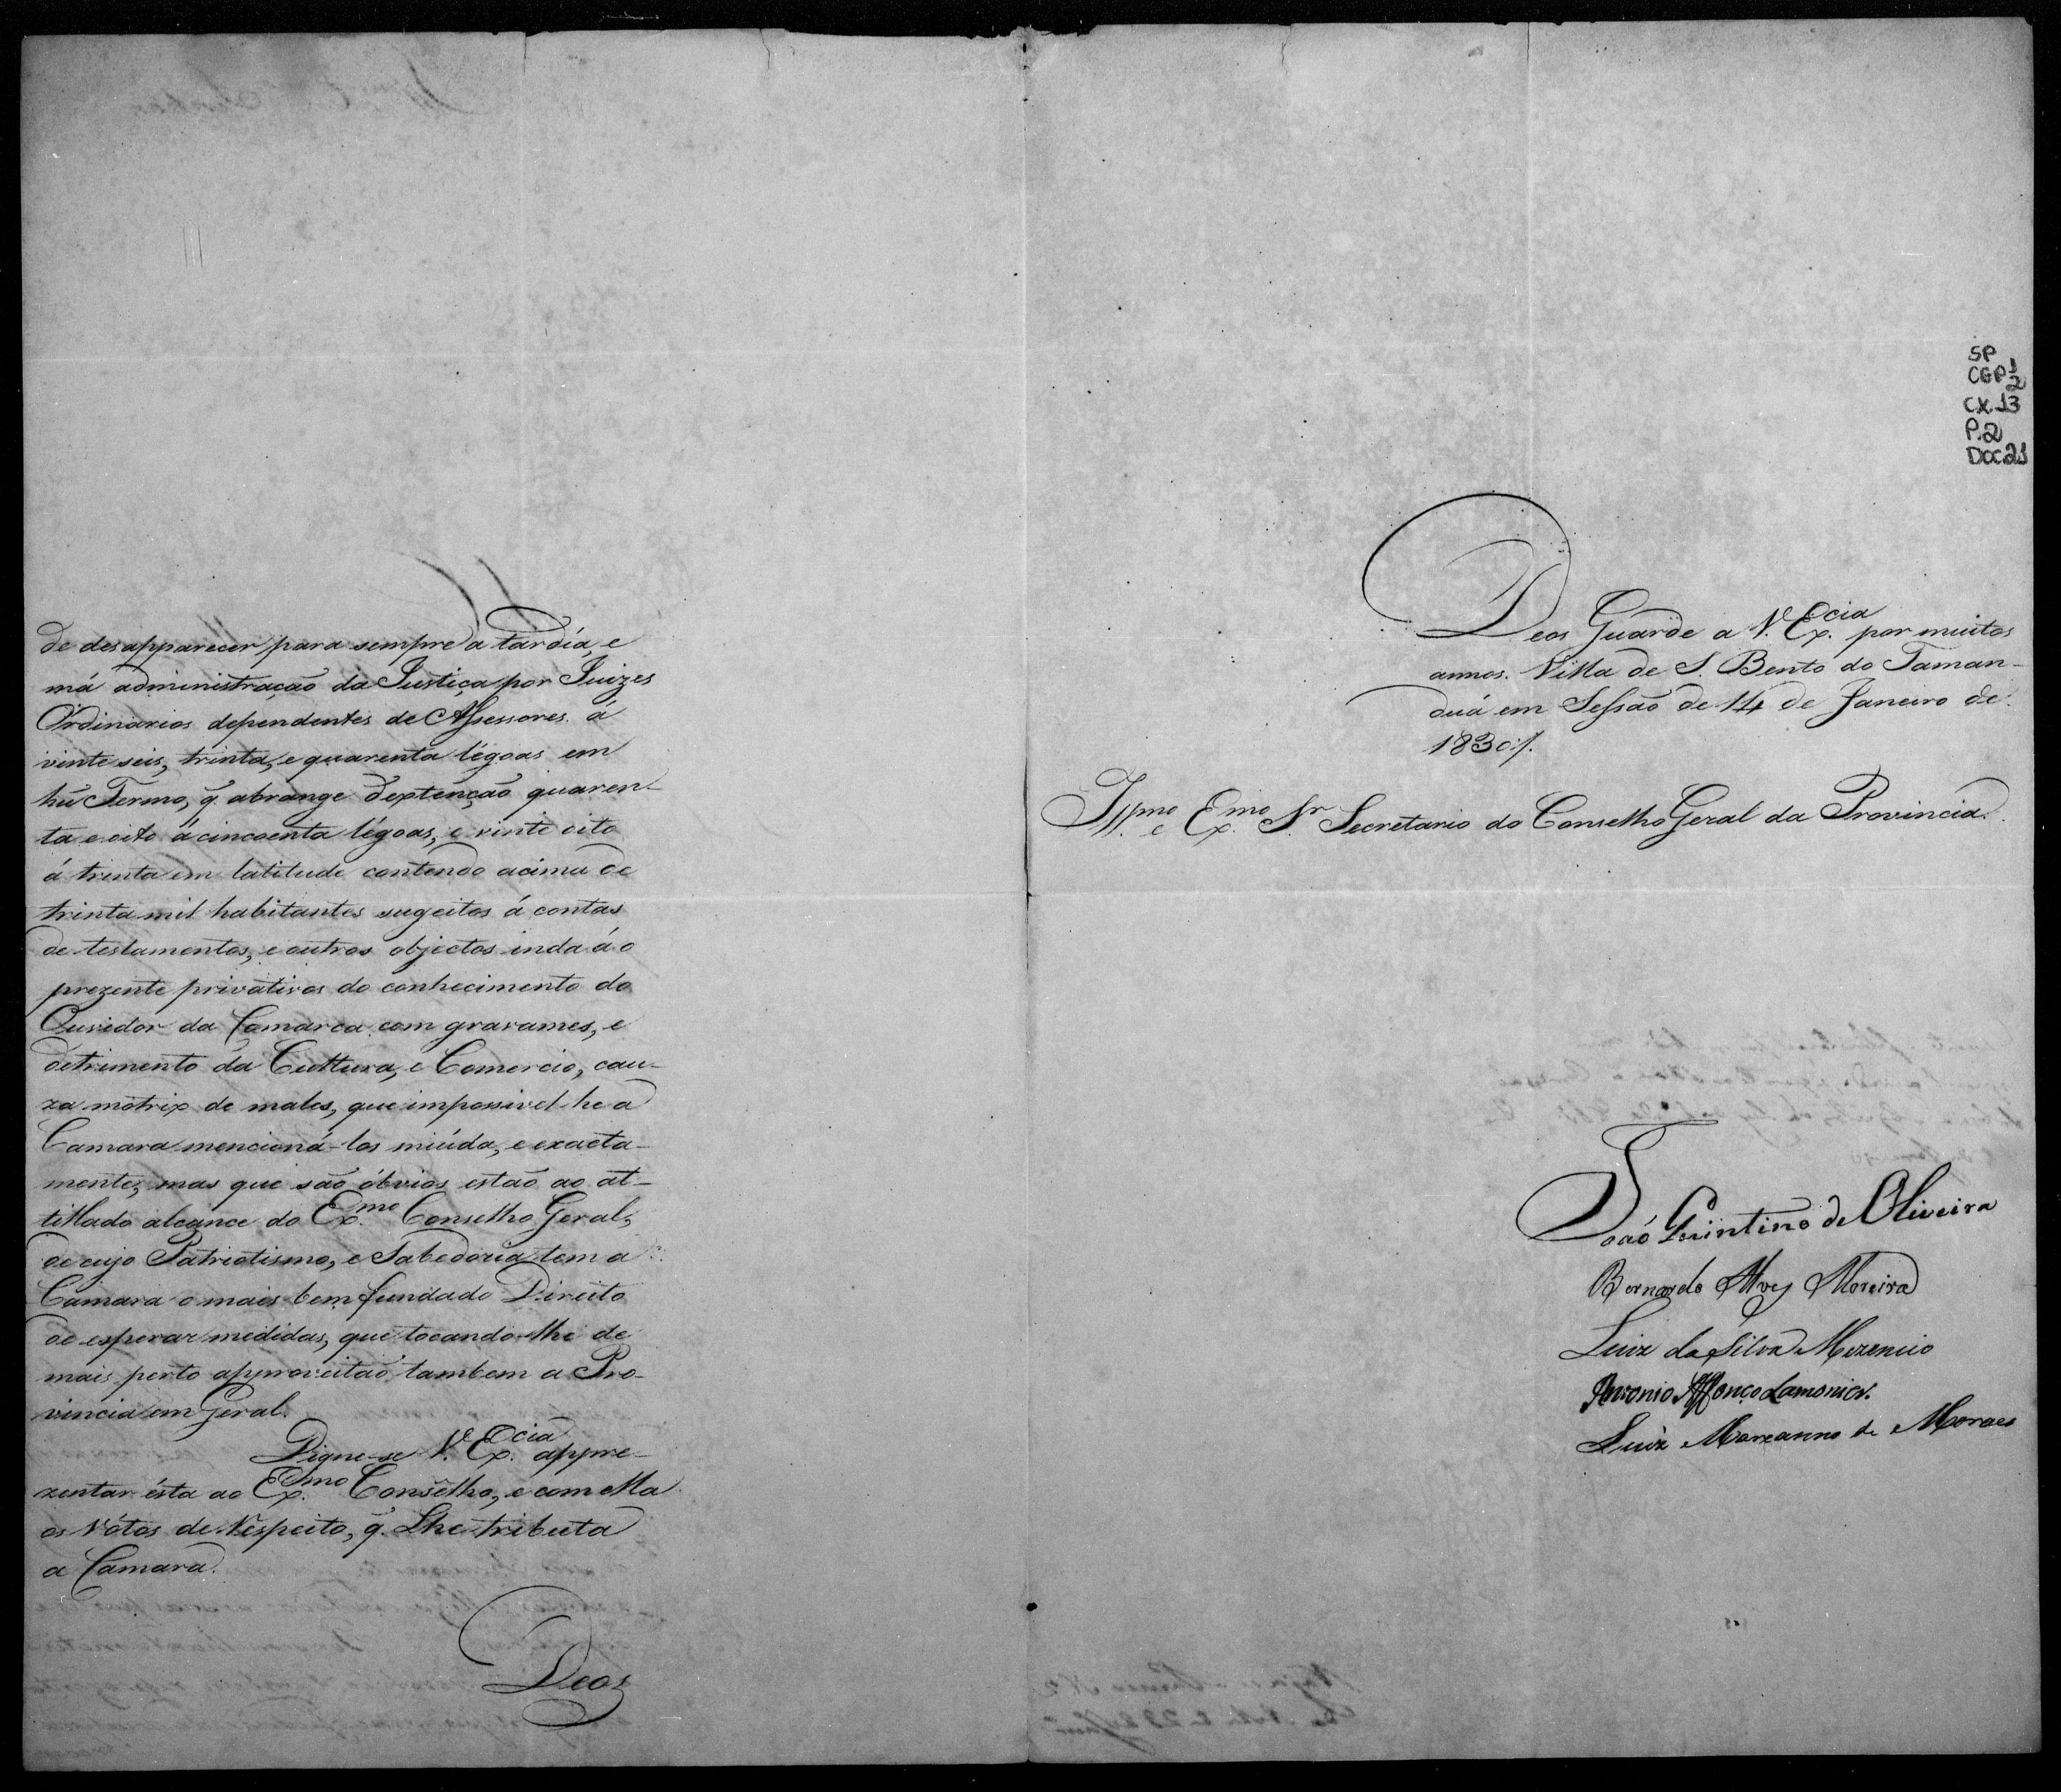 de desapparecer para sempre a tardía, e
má administração da Justiça por Juizes
Ordinarios dependentes de Assessores á
vinte seis, trinta, e quarenta légoas em
hũ Termo, q̃ abrange d'extenção quaren-
ta e oito á cincoenta légoas, e vinte oito
á trinta em latitude contendo acima de
trinta mil habitantes sugeitos á contas
de testamentos, e outros objectos inda áo
prezente privativos do conhecimento do
Ouvidor da Comarca com gravames, e
detrimento da Cultura, e Comercio, cau-
za motrix de males, que impossivel he a
Camara mencioná-los miúda, e exacta-
mente, mas que são óbvios estão ao at-
tillado alcance do Ex.mo Conselho Geral,
de cujo Patriotismo, e Sabedoria tem a
Camara o mais bem fundado Direito
de esperar medidas, que tocando-lhe de
mais perto approveitão tambem a Pro-
vincia em Geral.
Digne-se V. Ex.cia appre-
zentar ésta ao Ex.mo Conselho, e com ella
os Vótos de Respeito, q̃ Lhe tributa
a Camara.
Deos
SP
CGP 1
2
CX.13
P.2
DOC.21
Deos Guarde a V. Ex.cia por muitos
annos. Villa de S. Bento do Taman-
duá em Sessão de 14 de Janeiro de
1830./.
Ill.mo e Ex.mo S.r Secretario do Conselho Geral da Provincia.
João Quintino de Oliveira
Bernardo Alves Moreira
Luiz da Silva Mezencio
Antonio Affonço Lamonier.
Luiz Marianno de Moraes